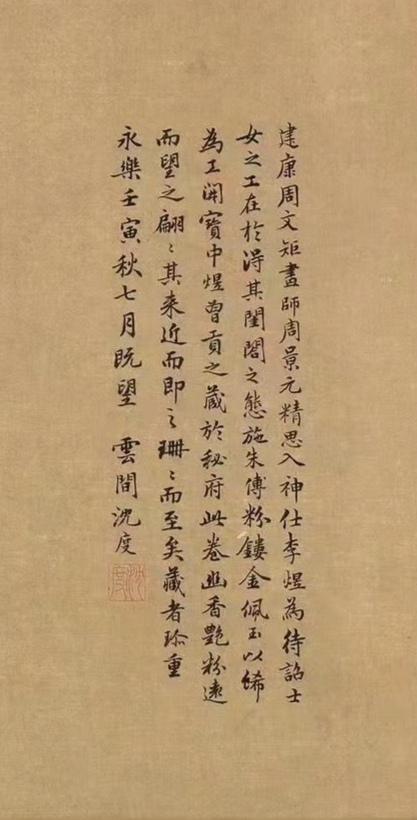 建康周文矩畫師周景元精思入神仕李煜為待詔士
女之工在於得其閨閤之態施朱傅粉鏤金佩玉以飾
為工開寶中煜曾貢之藏於秘府此卷幽香艷粉遠
而望之翩〻其来近而即之珊〻而至矣藏者珎重
永樂壬寅秋七月既望 雲間沈度
沈度